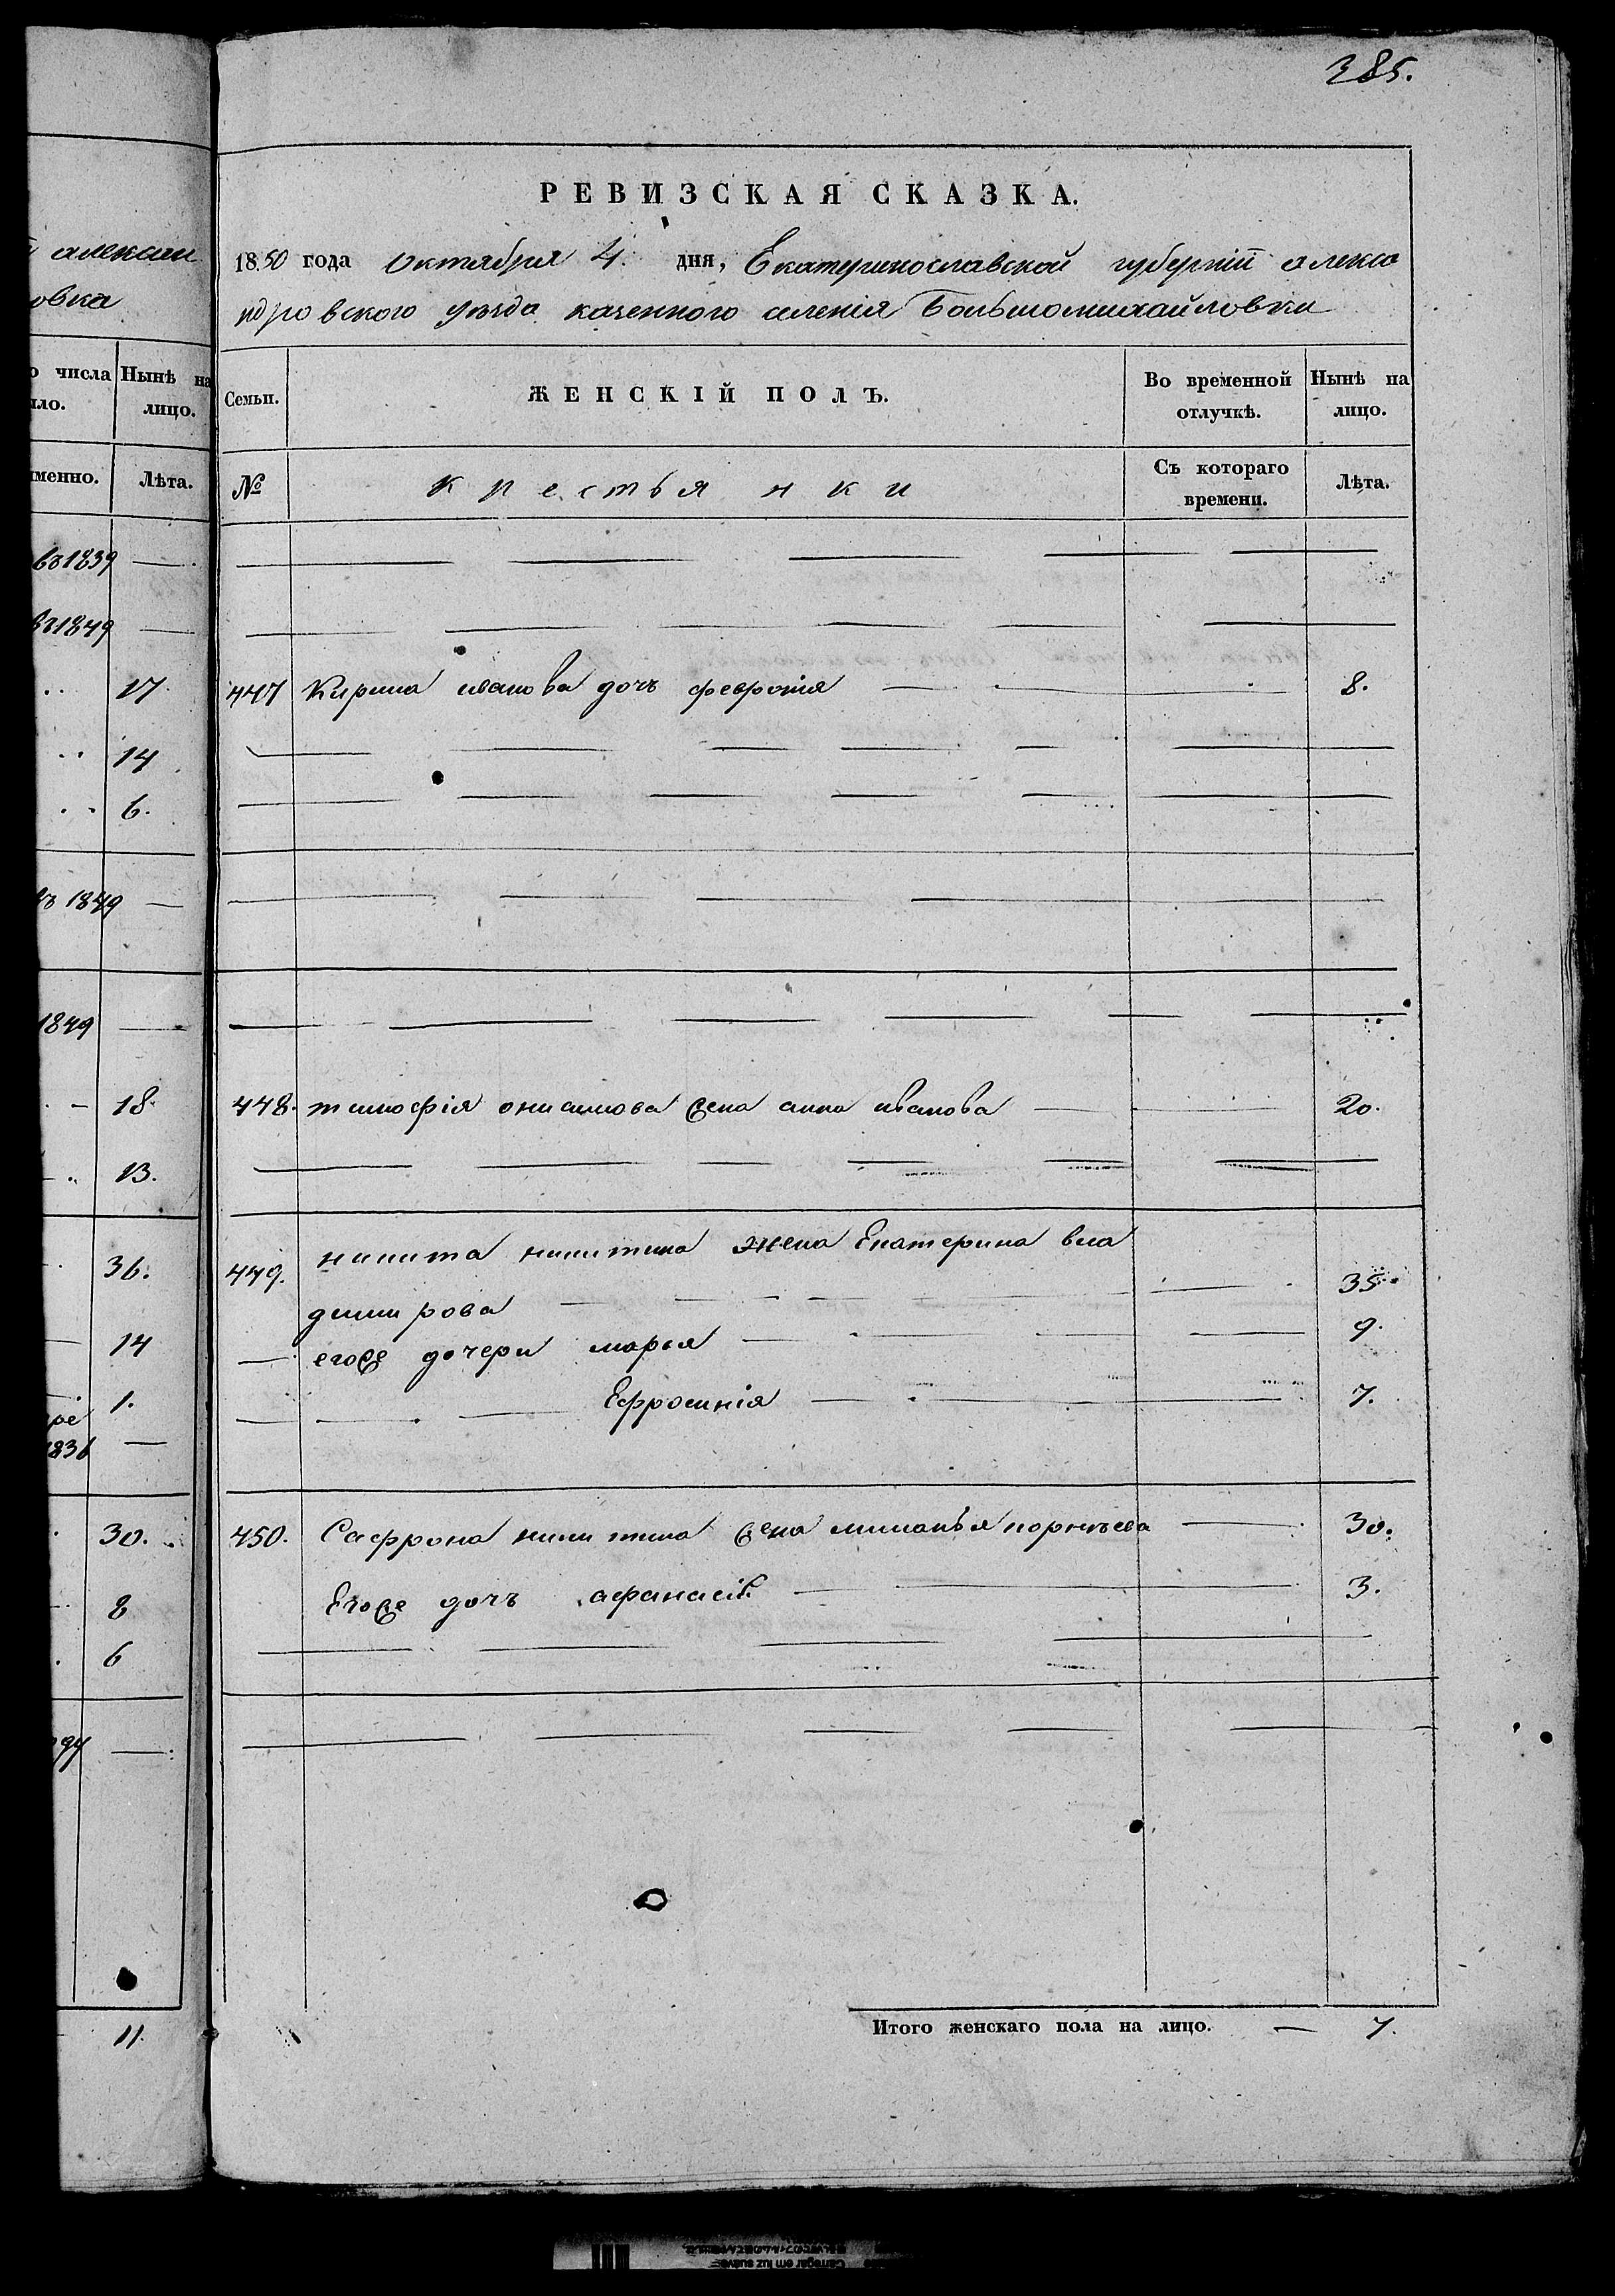 385.
РЕВИЗСКАЯ СКАЗКА.
1850 года Октября 4. дня, Екатеринославской губерніи алекса
ндровского уѣзда казенного селенія Большомихайловки
Семьи. ЖЕНСКІЙ ПОЛЪ. Во временной отлучкѣ. Нынѣ на лицо.
№ Крестьянки Съ котораго времени. Лѣта.
447 Кирила иванова дочъ февронія 8.
448. тимофія онисимова жена анна иванова 20.
449. никита никитина жена Екатерина вла
димирова 35
егоже дочери марья 9.
Ефросинія 7.
450. Сафрона никитина жена миланья 30.
Егоже дочъ 3.
Итого женскаго пола на лицо. — 7.
алексан
овка
числа Нынѣ на
ло. лицо.
именно. Лѣта.
въ 1839
въ 1849
17
14
6.
въ 1849
1849
18
13.
36.
14
1.
1836
30.
8
6
11.